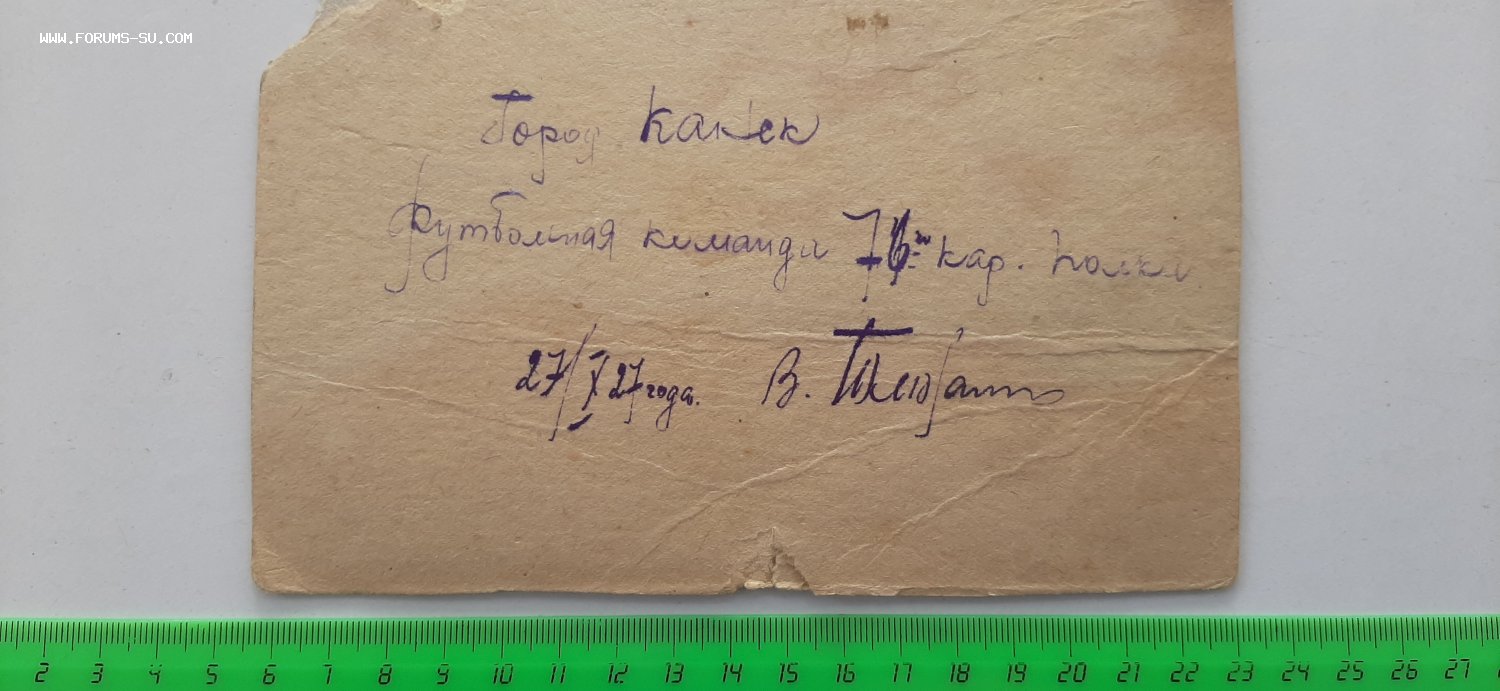 WWW.FORUMS-SU.COM
Город Канск
футбольная команда 76го кар. полка
27/X 27 года. В.
2 3 4 5 6 7 8 9 10 11 12 13 14 15 16 17 18 19 20 21 22 23 24 25 26 27